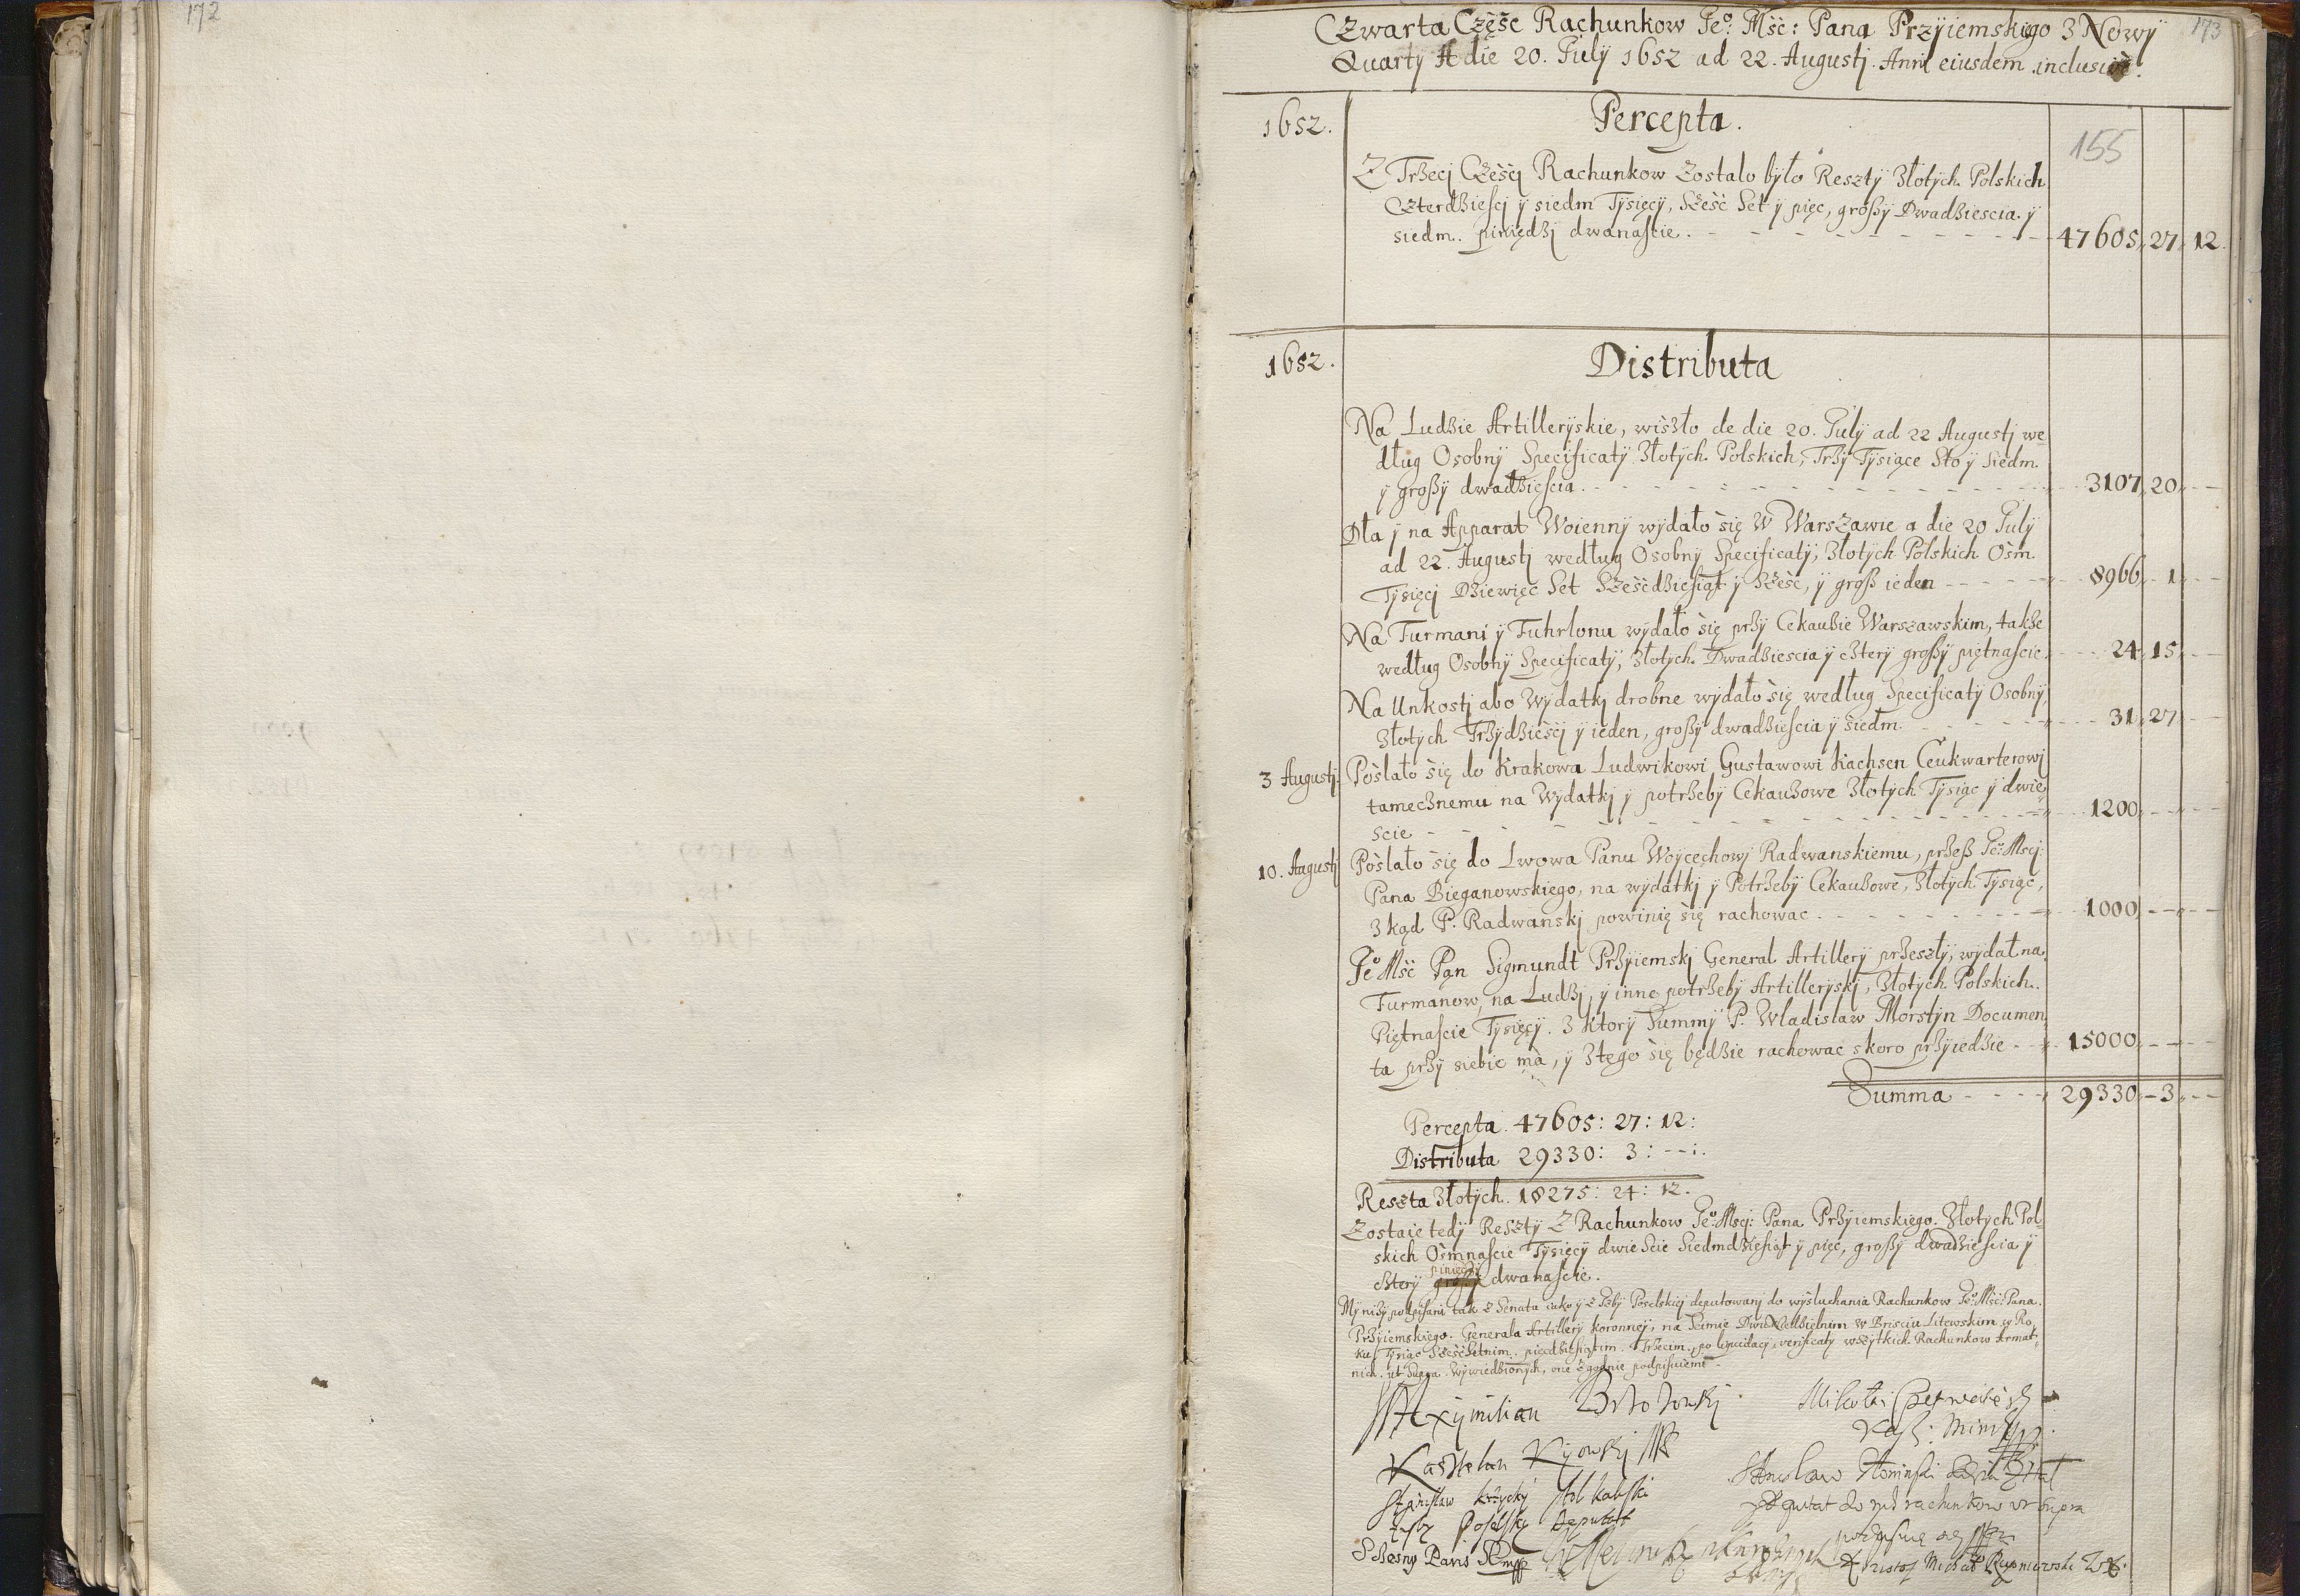 172
173
Czwarta Częsc Rachunkow Jeo: Msc: Pana Przÿiemskiego З Nowÿ
Quartÿ A die 20. Julÿ 1652 ad 22. Augustj. Anni eiusdem inclusivè.
1652.
Percepta.
155
Z Trзecj Częscj Rachunkow zostalo bÿło Resztÿ Złotÿch Polskich
Czterdзiescj ÿ siedm Tÿsięcÿ, Szesc Set ÿ pięc, großÿ Dwadзiescia ÿ
siedm. piniędзj dwanascie. 47605 27 12.
1652.
Distributa
Na Ludзie Artillerÿskie, wisзło de die 20. Julÿ ad 22 Augustj we
dług Osobnÿ Specificatÿ Złotÿch Polskich, Trзÿ Tÿsiące Sto ÿ Siedm
ÿ großÿ dwadзiescia. 3107 20
Dla ÿ na Apparat Woiennÿ wÿdało się W Warszawie a die 20 Julÿ
ad 22. Augustj według Osobnÿ Specificatÿ, Złotÿch Polskich Osm
Tÿsięcj Dзiewięc Set Szescdзiesiąt ÿ Szesc, ÿ groß ieden 8966 1
Na Furmani ÿ Fuhrlonu wÿdało się prзÿ Cekauзie Warszawskim, takзe
według Osobnÿ Specificatÿ, Złotÿch Dwadзiescia ÿ cзterÿ großÿ piętnascie. 24 15
Na Unkostj abo Wÿdatkj drobne wÿdało się według Specificatÿ Osobnÿ,
Złotÿch Trзÿdзiescj ÿ ieden, großÿ dwadзiescia ÿ siedm. 31 27
3 Augustj. Posłało się do Krakowa Ludwikowi Gustawowi Kachsen Ceukwarterowj
tamecзnemu na Wÿdatkj ÿ potrзebÿ Cekauзowe Złotÿch Tÿsiąc ÿ dwie
scie 1200
10. Augustj Posłało się do Lwowa Panu Woÿcechowj Radwanskiemu, prзeß Jeo: Mscj:
Pana Bieganowskiego, na wÿdatkj ÿ Potrзebÿ Cekauзowe, Złotÿch Tÿsiąc,
З kąd P. Radwanskj powinię się rachowac 1000
Jeo Msc Pan Sigmundt Prзÿiemskj General Artillerÿ prзeszłÿ, wÿdał na
Furmanow, na Ludзj, ÿ inne potrзebÿ Artillerÿskj, Złotÿch Polskich
Piętnascie Tÿsięcÿ. З ktorÿ Summÿ P. Wladislaw Morstÿn Documen
ta prзÿ siebie ma, ÿ З tego się będзie rachowac skoro prзÿiedзie 15000
Summa 29330 3
Percepta. 47605: 27: 12:
Distributa 29330: 3: --:
Reszta Złotÿch. 18275: 24: 12.
Zostaie tedÿ Resztÿ Z Rachunkow Jeo: Mscj: Pana Prзÿiemskiego. Złotÿch Pol
skich Osmnascie Tÿsięcÿ dwie Scie Siedmdziesiąt ÿ pięc, großÿ dwadзiescia ÿ
cзterÿ piniędzj dwanascie.
Mÿ niзÿ podpisani tak z Senatu iako ÿ z Izbÿ Poselskiej deputowanj do wÿsluchania Rachunkow Jeo: Msc: Pana
Prзÿiemskiego. Generala Artillerÿ koronneÿ, na Seimie Dwu Niedзielnim w Brisciu Litewskim w Ro
ku Tÿsiąc Szescsetnim. piędзiesiątim. Trзecim, po liquidacÿ, verificatÿ wszÿtkich Rachunkow Armat
nich. ut Supra. Wÿwiedзionÿch, one zgodnie podpisuiemÿ
Maxÿmilian Brзoзowskj
Kasztelan Kÿowskj
Mikołai
Kasz: Min
Stanislaw
Deputat do tych rachunkow ut supra
podpisuię się
Izbÿ Poselskÿ Deputat
Krisztof Michał Rupniewski